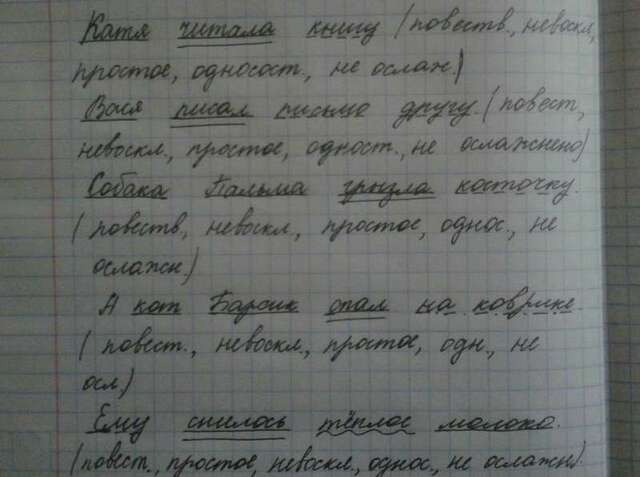 Катя читала книгу (повеств., невоскл,
простое, односост., не ослаж.)
Вася писал письмо другу. (повест,
невоскл., простое, одност., не ослажнено)
Собака Пальма грызла косточку.
(повеств, невоскл, простое, однос., не
ослажн.)
А кот Барсик спал на коврике.
(повест., невоскл., простое, одн., не
осл)
Ему снилось тёплое молоко.
(повест., простое, невоскл., однос., не ослажн).